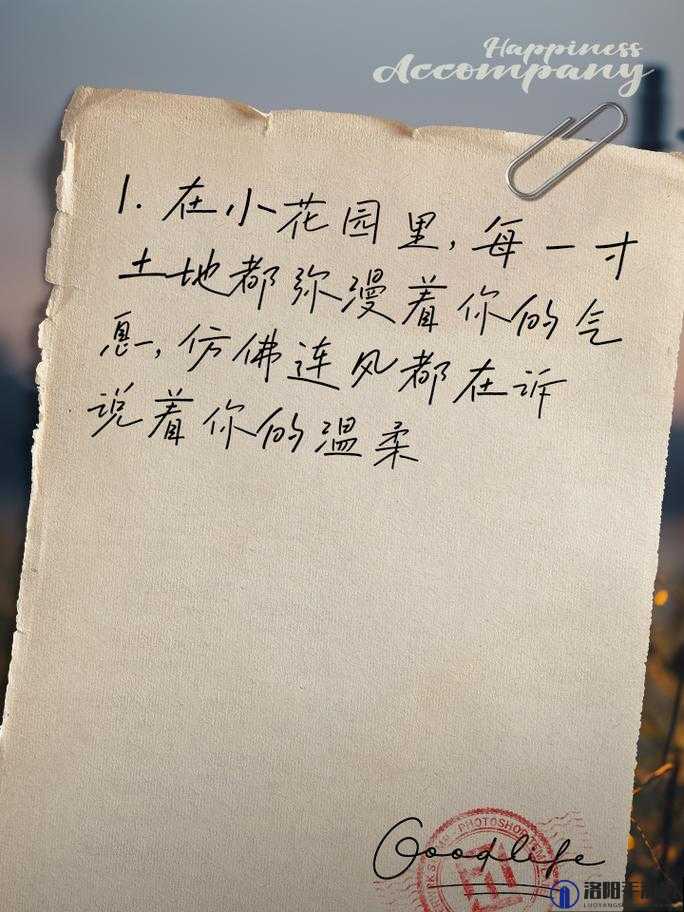 Happiness
Accompany
1. 在小花园里，每一寸
土地都弥漫着你的气
息，仿佛连风都在诉
说着你的温柔
PHOTOSHOP
Goodlife
洛阳手
LUOYANGS